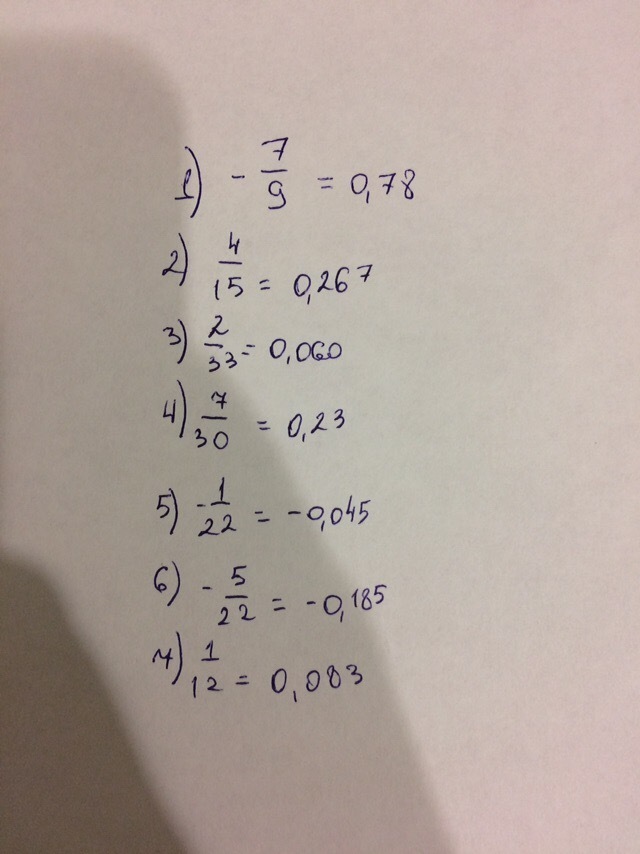 1) - 7/9 = 0,78
2) 4/15 = 0,267
3) 2/33 = 0,060
4) 7/30 = 0,23
5) - 1/22 = -0,045
6) - 5/22 = -0,185
7) 1/12 = 0,083